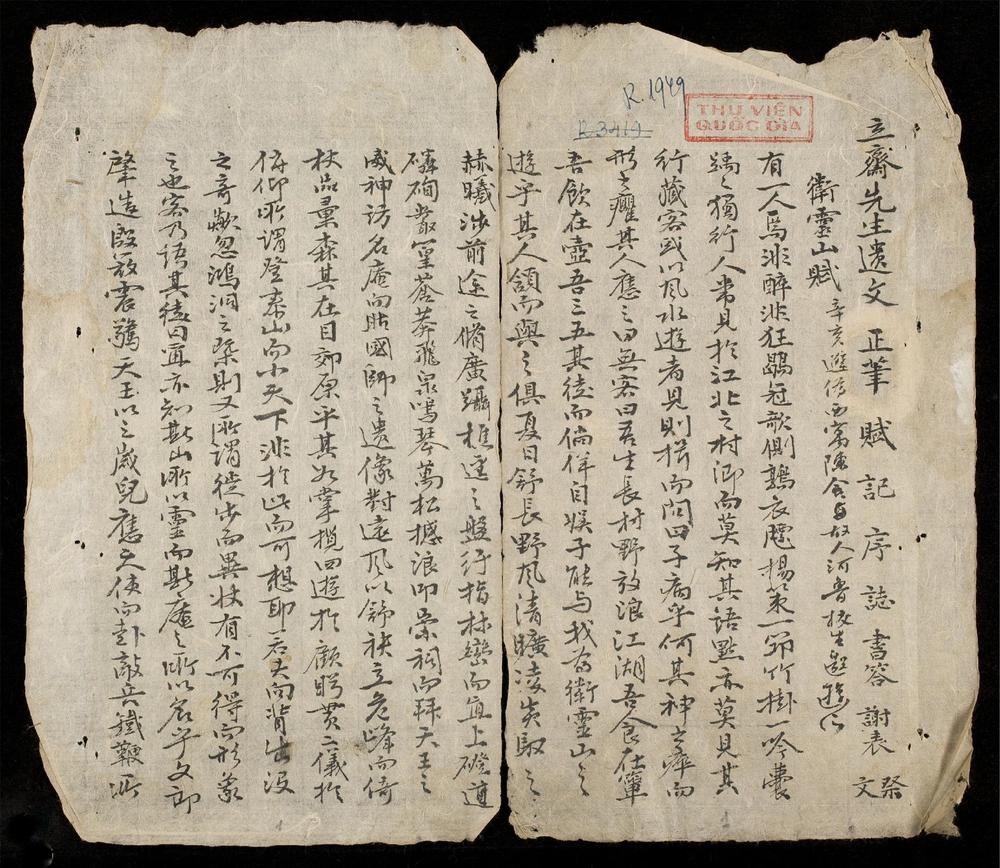 立齋先生遺文 正筆 賦 記 序 誌 書答 謝表 祭文
衛靈山賦 辛亥遊 西 與故人河 校生遊
有一人焉非醉非狂鶡冠欹側鶉衣飄揚策一笻竹掛一吟囊
踽々獨行人常見於江北之村鄉而莫知其語默亦莫見其
行藏客或以風水遊者見則揖而問曰子病乎何其神之瘁而
形之癯其人應之曰無客曰吾生長村野放浪江湖吾食在簞
吾飲在壺吾三五其徒而倘佯自娛子能与我為衛靈山之
遊乎其人頷而與之俱夏日舒長野風清曠凌炎馭之
赫曦涉前途之脩廣躡樵逕之盤紆指林巒而直上磴道
磷磵叢篁蒼莽飛泉鳴琴萬松撼浪叩崇祠而拜天王之
威神訪名庵而貼國師之遺像對遠風以舒袂立危峰而倚
杖品彙森其在目郊原平其如掌攬四遊於顧眄貫二儀於
俯仰所謂登泰山而小天下非於此而可想耶若夫向背出沒
之奇歘忽鴻洞之 則又所謂徙步而異狀有不可得而形象
之也客乃語其徒曰而亦知斯山所以靈而斯庵之所以名乎文郎
肇造殷 震驚天王以三歲兒應天使而卦敵兵鐵鞭所
THƯ VIỆN
QUỐC GIA
R.1949
R 3419